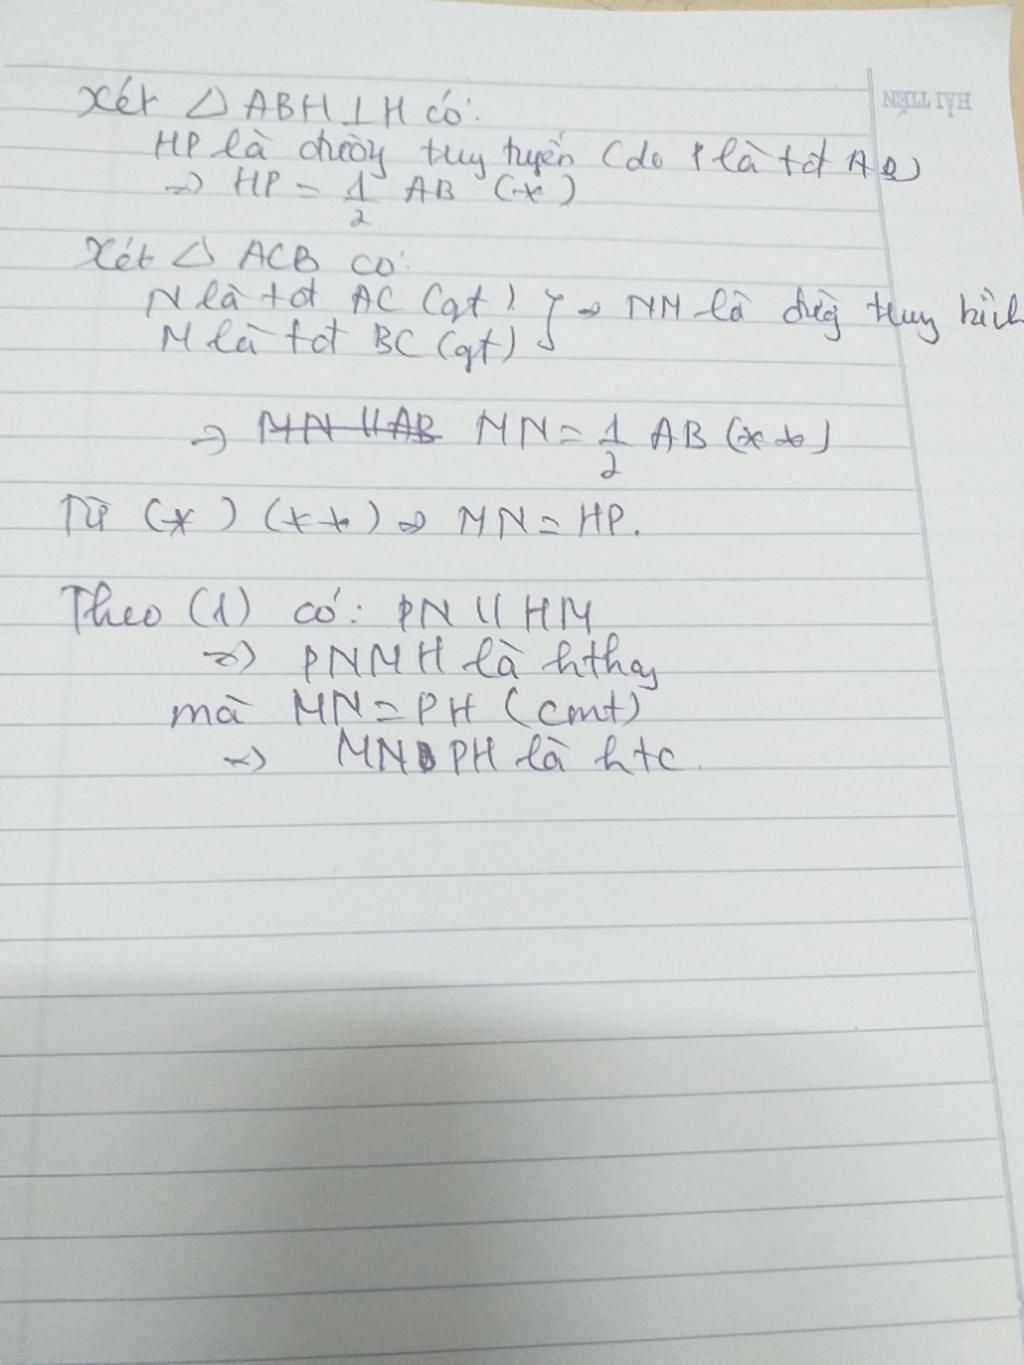 HẢI TIẾN
Xét △ ABH ⊥ H có:
HP là đường trung tuyến (do P là tđ AB)
=> HP = 1/2 AB (*)
Xét △ ACB có:
N là tđ AC (gt)
M là tđ BC (gt) } => NM là đường trung bình
=> MN || AB MN = 1/2 AB (**)
Từ (*) (**) => MN = HP.
Theo (1) có: PN || HM
=> PNMH là hthang
mà MN = PH (cmt)
=> MNPH là htc.